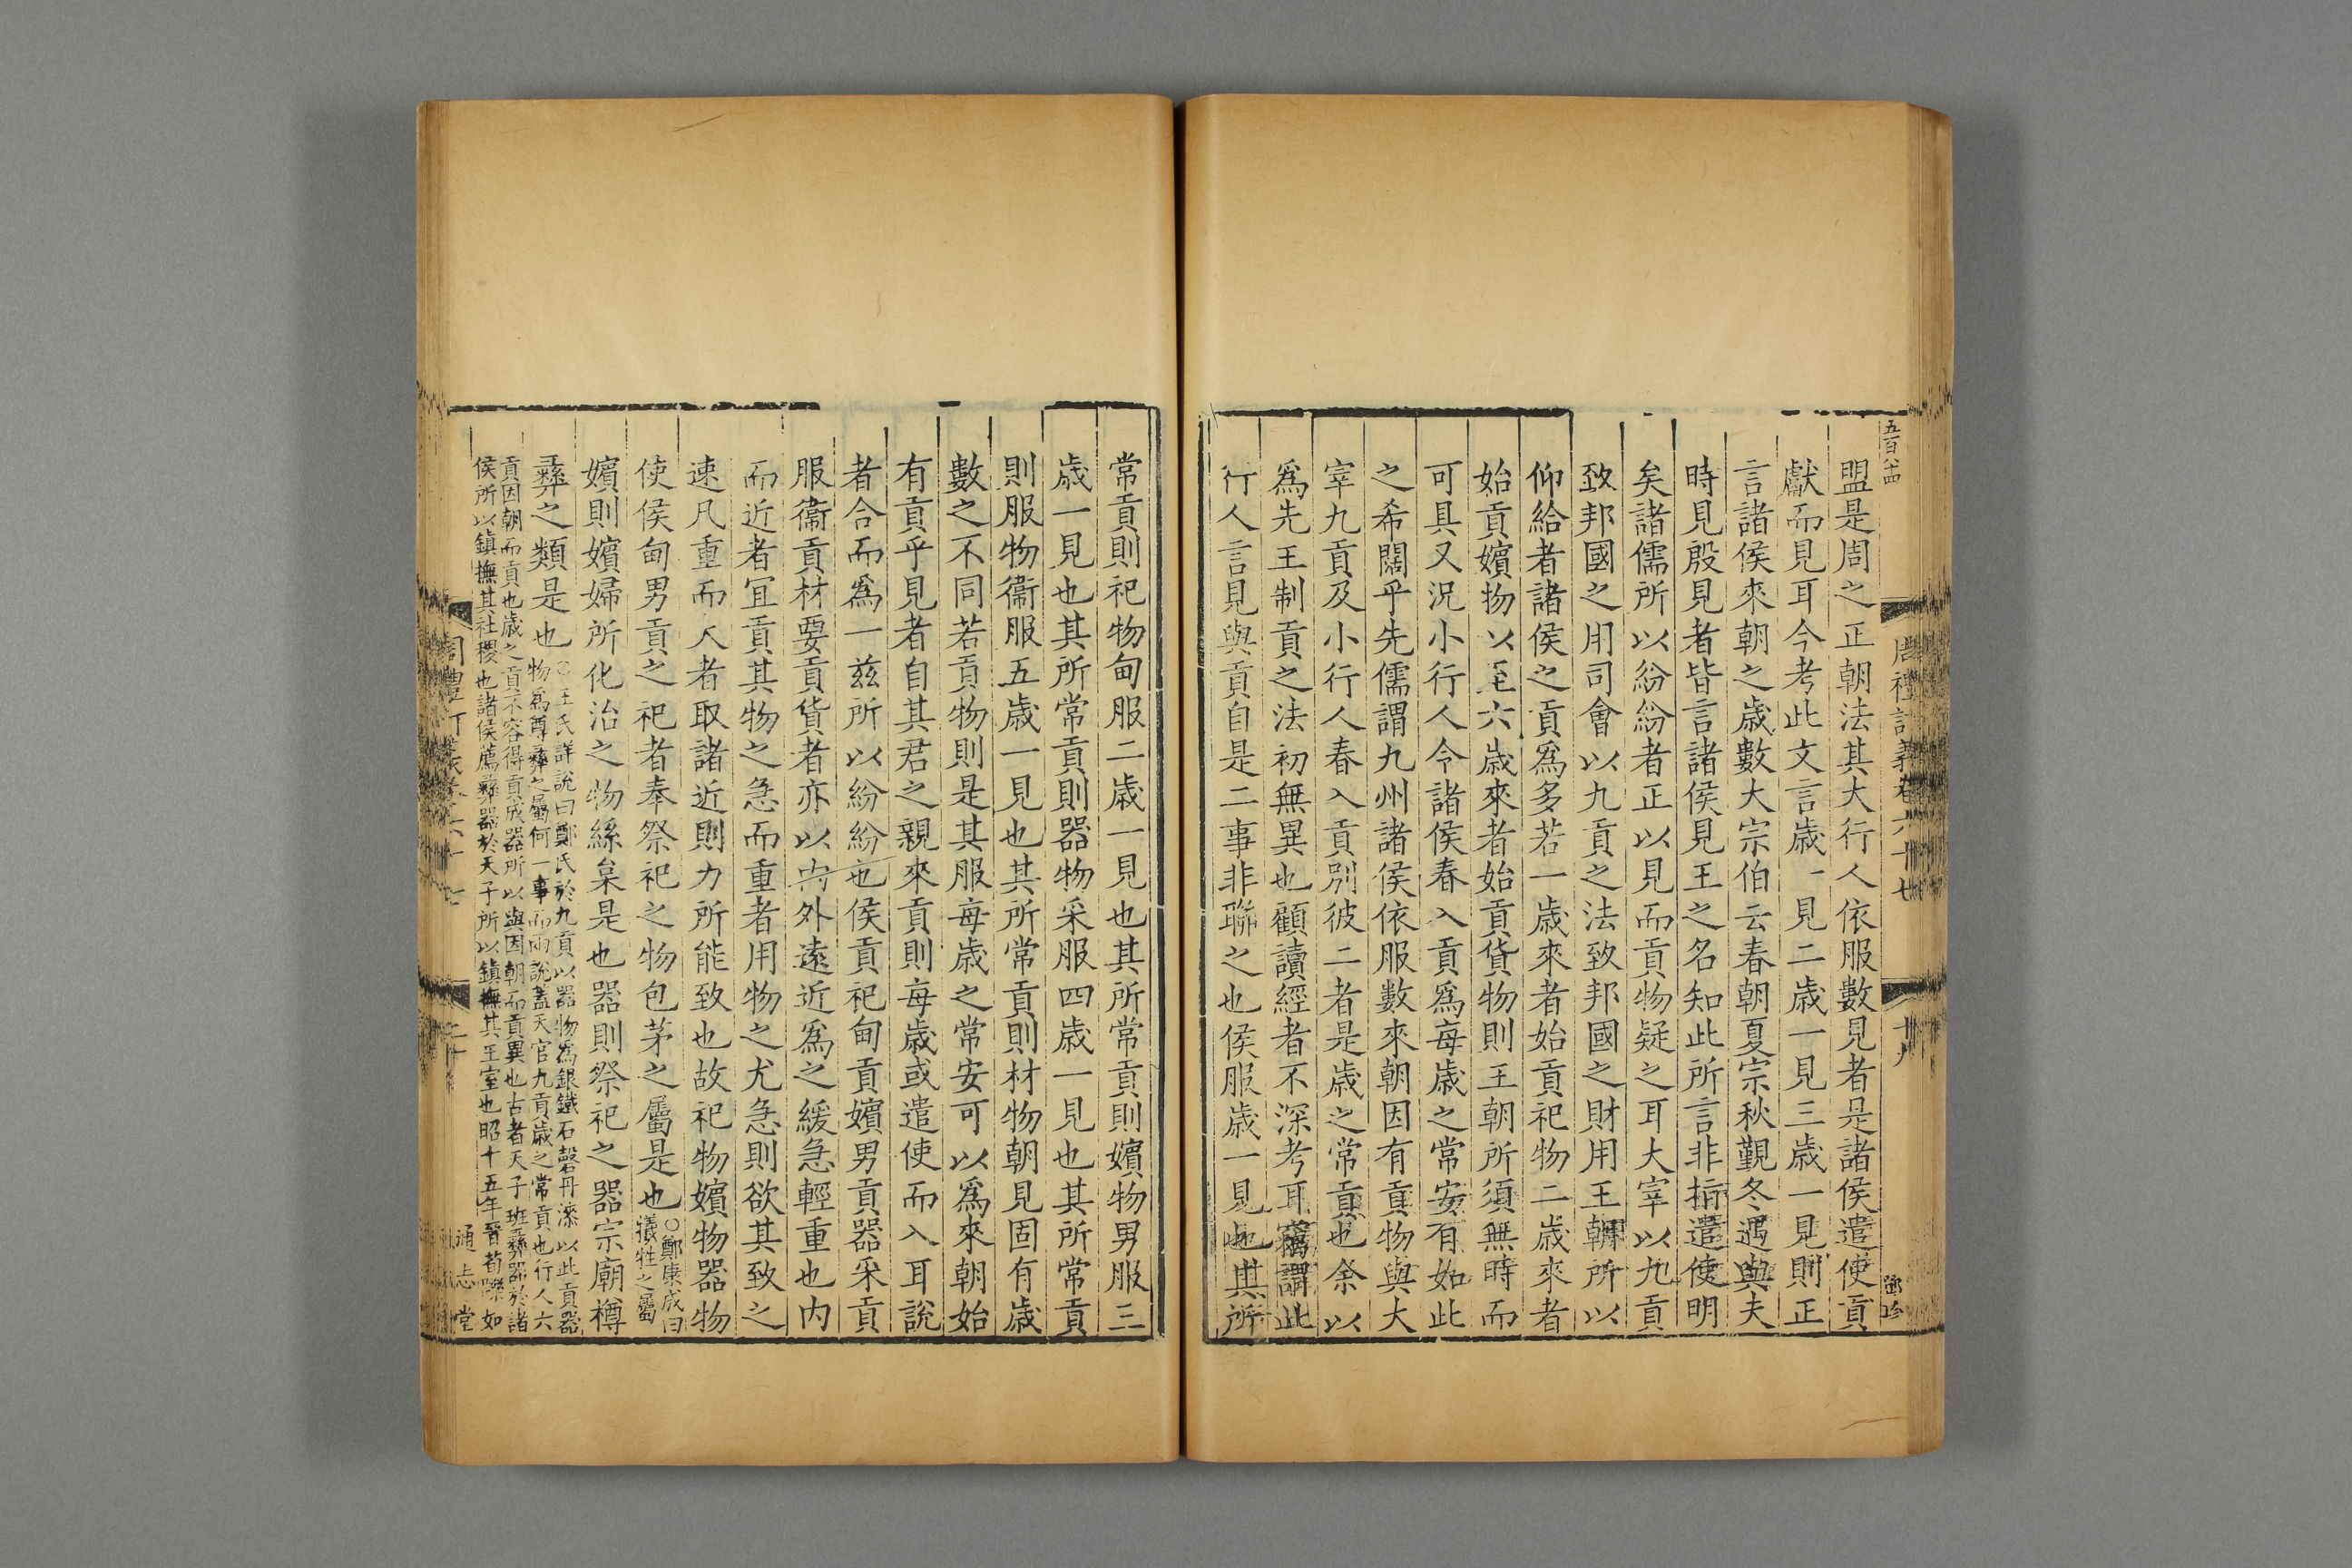 五百八十四
周禮訂義卷六十七
十九
鄧珍
盟是周之正朝法其大行人依服數見者是諸侯遣使貢
獻而見耳今考此文言歲一見二歲一見三歲一見則正
言諸侯來朝之歲數大宗伯云春朝夏宗秋覲冬遇與夫
時見殷見者皆言諸侯見王之名知此所言非指遣使明
矣諸儒所以紛紛者正以見而貢物疑之耳大宰以九貢
致邦國之用司會以九貢之法致邦國之財用王朝所以
仰給者諸侯之貢爲多若一歲來者始貢祀物二歲來者
始貢嬪物以至六歲來者始貢貨物則王朝所須無時而
可具又況小行人令諸侯春入貢爲每歲之常安有如此
之希闊乎先儒謂九州諸侯依服數來朝因有貢物與大
宰九貢及小行人春入貢別彼二者是歲之常貢也余以
爲先王制貢之法初無異也顧讀經者不深考耳竊謂此
行人言見與貢自是二事非聯之也侯服歲一見也其所
常貢則祀物甸服二歲一見也其所常貢則嬪物男服三
歲一見也其所常貢則器物采服四歲一見也其所常貢
則服物衞服五歲一見也其所常貢則材物朝見固有歲
數之不同若貢物則是其服每歲之常安可以爲來朝始
有貢乎見者自其君之親來貢則每歲或遣使而入耳說
者合而爲一茲所以紛紛也侯貢祀甸貢嬪男貢器采貢
服衞貢材要貢貨者亦以內外遠近爲之緩急輕重也內
而近者宜貢其物之急而重者用物之尤急則欲其致之
速凡重而大者取諸近則力所能致也故祀物嬪物器物
使侯甸男貢之祀者奉祭祀之物包茅之屬是也○鄭康成曰
犧牲之屬
嬪則嬪婦所化治之物絲枲是也器則祭祀之器宗廟樽
彝之類是也○王氏詳說曰鄭氏於九貢以器物爲銀鐵石磬丹漆以此貢器
物爲尊彝之屬何一事而兩說蓋天官九貢歲之常貢也行人六
貢因朝而貢也歲之貢不容得貢成器所以與因朝而貢異也古者天子班彝器於諸
侯所以鎮撫其社稷也諸侯薦彝器於天子所以鎮撫其王室也昭十五年晉荀躒如
周禮訂義卷六十七
二十
通志堂